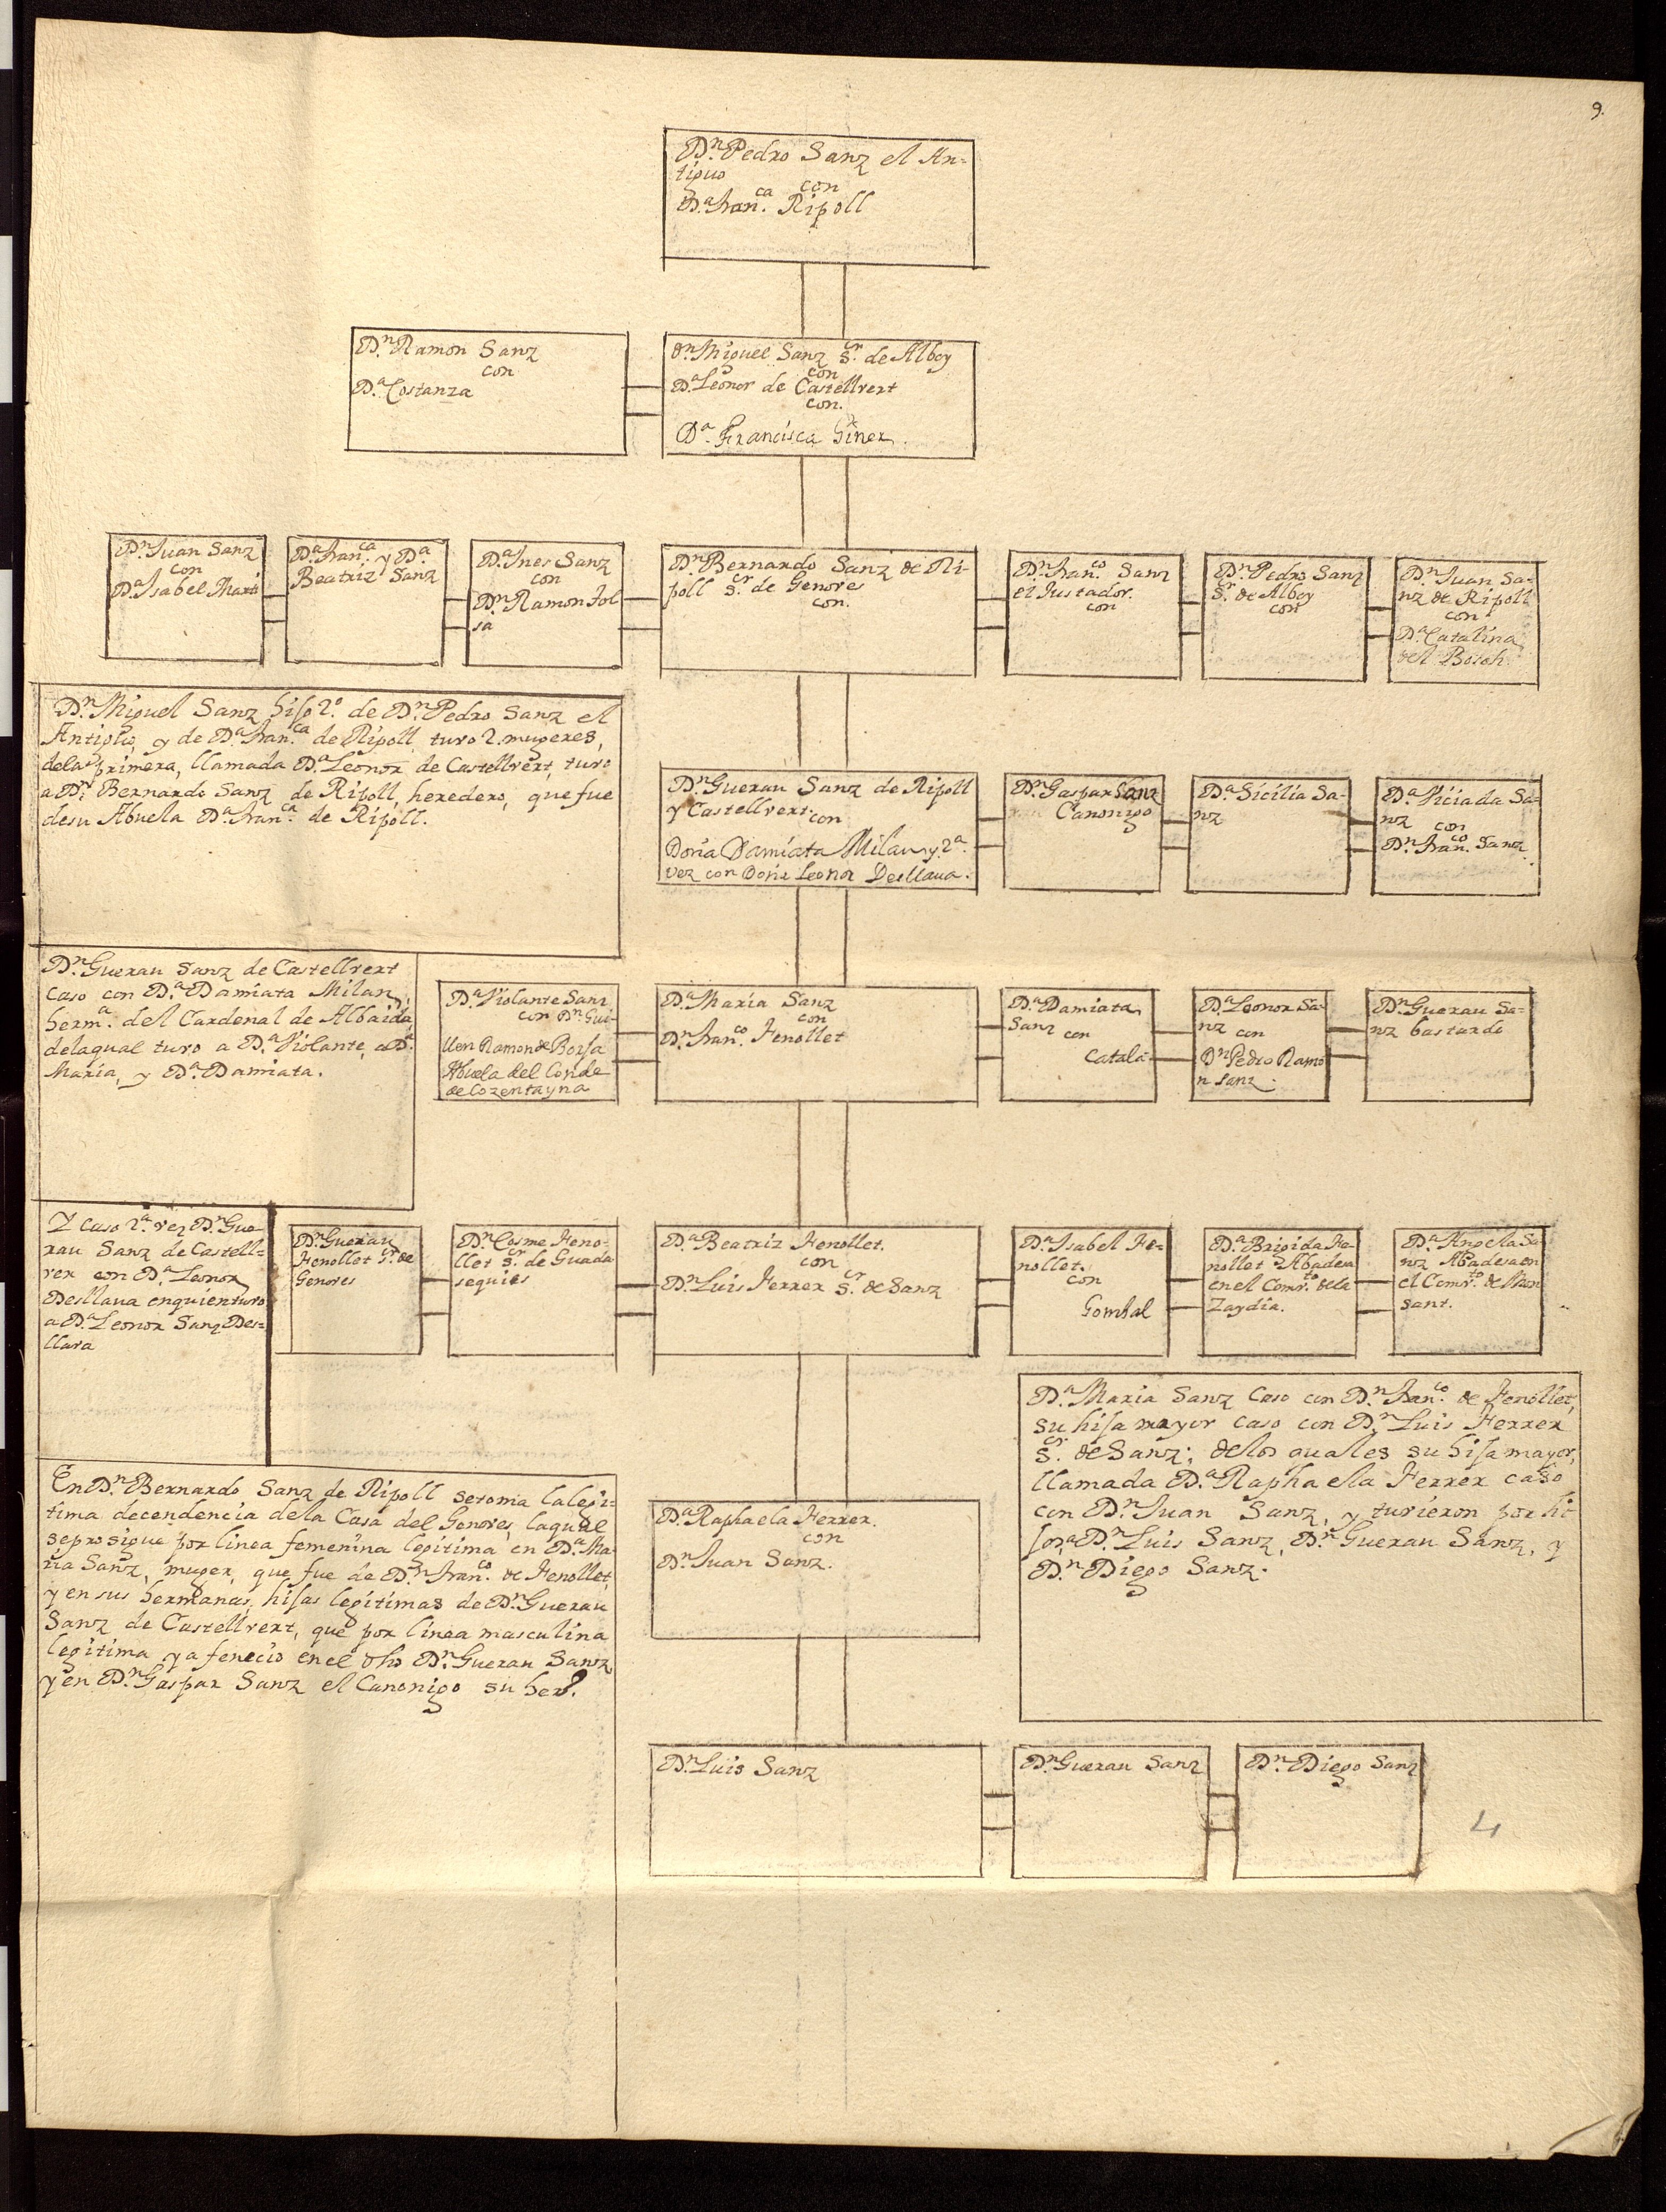 9.
Dn. Pedro Sanz el An-
tiguo
con
Da. Franca. Ripoll
Dn. Ramon Sanz
con
Da. Costanza
Dn. Miguel Sanz sr. de Alboy
con
Da. Leonor de Castellvert
con.
Da. Francisca Giner.
Dn. Juan Sanz
con
Da. Isabel Marti
Da. Franca. y Da.
Beatriz Sanz
Da. Ines Sanz
con
Dn. Ramon Tol
sa
Dn. Bernardo Sanz de Ri-
poll sr. de Genoves
con.
Dn. Franco. Sanz
el Justador.
con
Dn. Pedro Sanz
sr. de Alboy
con
Dn. Juan Sa-
nz de Ripoll
con
Da. Catalina
del Bosch
Dn. Miguel Sanz hijo 2o. de Dn. Pedro Sanz el
Antiguo, y de Da. Franca. de Ripoll, tuvo 2. mugeres,
dela primera, llamada Da. Leonor de Castellvert, tuvo
a Dn. Bernardo Sanz de Ripoll, heredero, que fue
desu Abuela Da. Franca. de Ripoll.
Dn. Guerau Sanz de Ripoll
y Castellvert con
Doña Damiata Milan y 2a.
vez con Doña Leonor Desllava.
Dn. Gaspar Sanz
Canonigo
Da. Sicilia Sa-
nz
Da. Viciada Sa-
nz con
Dn. Franco. Sanz
Dn. Guerau Sanz de Castellvert
Caso con Da. Damiata Milan,
herma. del Cardenal de Albaida,
delaqual tuvo a Da. Violante, a Da.
Maria, y Da. Damiata.
Da. Violante Sanz
con Dn. Gui-
llen Ramon de Borja
Abuela del Conde
de Cozentayna
Da. Maria Sanz
con
Dn. Franco. Fenollet
Da. Damiata
Sanz con
Catalá
Da. Leonor Sa-
nz con
Dn. Pedro Ramo
n Sanz.
Dn. Guerau Sa-
nz bastardo
Y caso 2a. vez Dn. Gue-
rau Sanz de Castell-
ver con Da. Leonor
Desllava enquien tuvo
a Da. Leonor Sanz Des-
llava
Dn. Guerau
Fenollet sr. de
Genoves
Dn. Cosme Feno-
llet sr. de Guada
sequies
Da. Beatriz Fenollet.
con
Dn. Luis Ferrer sr. de Sanz
Da. Isabel Fe-
nollet.
con
Gombal
Da. Brigida Fe-
nollet Abadesa
en el Convto. dela
Zaydia.
Da. Angela Sa-
nz Abadesa en
el Convto. de Mon
sant.
Da. Maria Sanz Caso con Dn. Franco. de Fenollet,
su hija mayor caso con Dn. Luis Ferrer
sr. de Sanz; delos quales su hija mayor,
llamada Da. Raphaela Ferrer caso
con Dn. Juan Sanz, y tuvieron por hi
jos, a Dn. Luis Sanz, Dn. Guerau Sanz, y
Dn. Diego Sanz.
En Dn. Bernardo Sanz de Ripoll setoma la legi-
tima decendencia dela Casa del Genoves, laqual
seprosigue por linea femenina legitima en Da. Ma-
ria Sanz, muger, que fue de Dn. Franco. de Fenollet,
y en sus hermanas, hijas legitimas de Dn. Guerau
Sanz de Castellvert, que por linea masculina
legitima ya fenecio en el dho Dn. Guerau Sanz,
y en Dn. Gaspar Sanz el Canonigo su hero.
Da. Raphaela Ferrer.
con
Dn. Juan Sanz.
Dn. Luis Sanz
Dn. Guerau Sanz
Dn. Diego Sanz
4